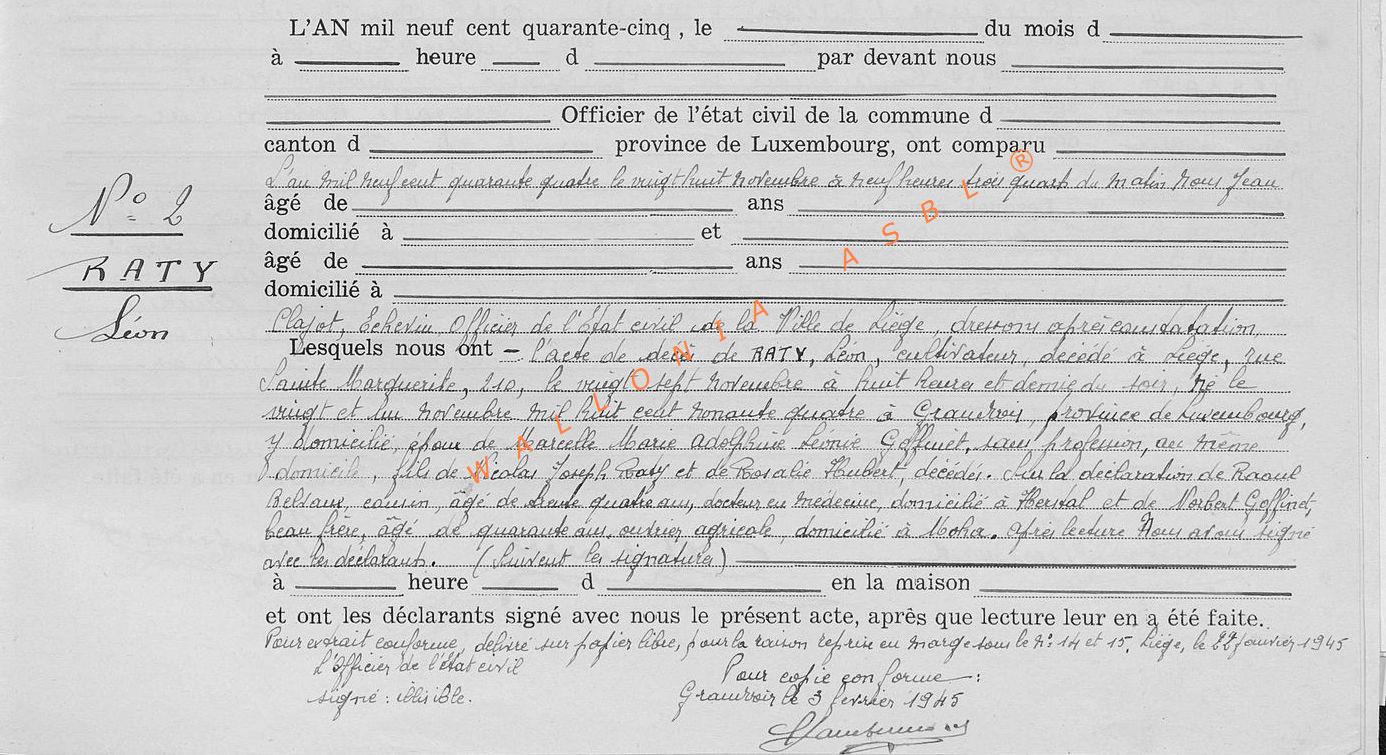 L'AN mil neuf cent quarante-cinq, le du mois d
à heure d par devant nous
Officier de l'état civil de la commune d
canton d province de Luxembourg, ont comparu
L'an mil neuf cent quarante quatre le vingt huit novembre à neuf heures trois quart du matin Nous Jean
âgé de ans
domicilié à et
âgé de ans
domicilié à
Clajot, Echevin Officier de l'Etat civil de la Ville de Liège, dressons après constatation
Lesquels nous ont – l'acte de décès de RATY, Léon, cultivateur, décédé à Liège, rue
Sainte Marguerite, 210, le vingt sept novembre à huit heures et demie du soir, né le
vingt et un novembre mil huit cent nonante quatre à Grandvoir, province de Luxembourg,
y domicilié, époux de Marcelle Marie Adolphine Léonie Goffinet, sans profession, au même
domicile, fils de Nicolas Joseph Raty et de Rosalie Hubert, décédés. Sur la déclaration de Raoul
Belvaux, cousin, âgé de trente quatre ans, docteur en médecine, domicilié à Herstal et de Norbert Goffinet,
beau frère, âgé de quarante ans, ouvrier agricole, domicilié à Moha. Après lecture Nous avons signé
avec les déclarants. (Suivent les signatures)
à heure d en la maison
et ont les déclarants signé avec nous le présent acte, après que lecture leur en a été faite.
Pour extrait conforme, délivré sur papier libre, pour la raison reprise en marge sous le N° 14 et 15, Liège, le 22 janvier 1945
L'Officier de l'état civil
signé: illisible.
Pour copie conforme:
Grandvoir le 3 février 1945
N° 2
RATY
Léon
WALLONIA ASBL ®